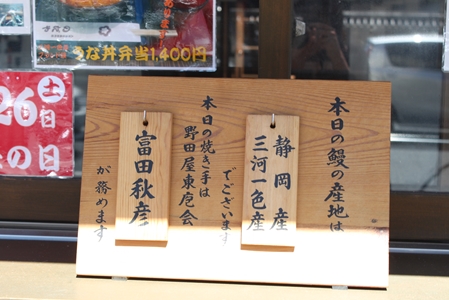 本日の鰻の産地は
静岡産
三河一色産
でございます
本日の焼き手は
野田屋東庖会
富田秋彦
が務めます
うな丼弁当1,400円
26土日
の日